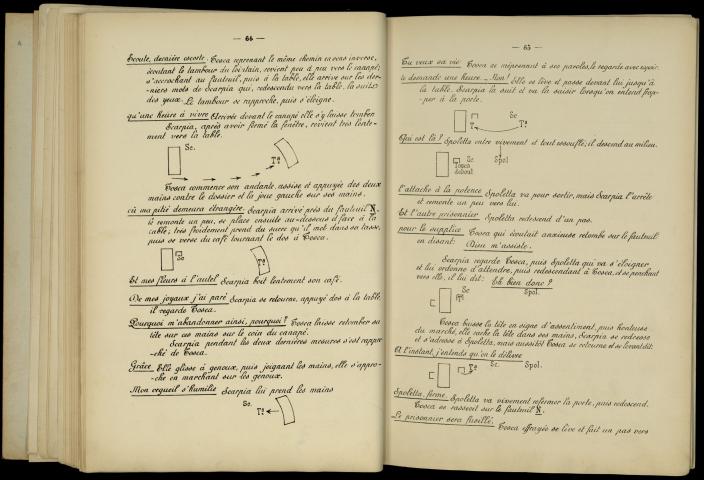 — 64 —
Ecoute, dernière escorte. Tosca reprenant le même chemin en sens inverse,
écoutant le tambour du lointain, revient peu à peu vers le canapé;
s'accrochant au fauteuil, puis à la table, elle arrive sur les der-
-niers mots de Scarpia qui, redescendu vers la table, la suit
des yeux. Le tambour se rapproche, puis s'éloigne.
qu'une heure à vivre Arrivée devant le canapé elle s'y laisse tomber
Scarpia, après avoir fermé la fenêtre, revient très lente-
ment vers la table.
Sc.
T<sup>a</sup>
Tosca commence son andante, assise et appuyée des deux
mains contre le dossier et la joue gauche sur ses mains.
où ma pitié demeura étrangère. Scarpia arrivé près du fauteuil N.
le remonte un peu, se place ensuite au-dessous d face à la
table; très froidement prend du sucre qu'il met dans sa tasse,
puis se verse du café tournant le dos à Tosca.
Sc
T<sup>a</sup>
Et mes fleurs à l'autel Scarpia boit lentement son café.
De mes joyaux j'ai paré Scarpia se retourne, appuyé dos à la table,
il regarde Tosca.
Pourquoi m'abandonner ainsi, pourquoi? Tosca laisse retomber sa
tête sur ses mains sur le coin du canapé.
Scarpia pendant les deux dernières mesures s'est rappro-
-ché de Tosca.
Grâce Elle glisse à genoux, puis joignant les mains, elle s'appro-
-che en marchant sur les genoux.
Mon orgueil s'humilie Scarpia lui prend les mains
Sc.
T<sup>a</sup>
— 65 —
Tu veux sa vie Tosca se méprenant à ses paroles, le regarde avec espoir.
je demande une heure. — Non! Elle se lève et passe devant lui jusqu'à
la table. Scarpia la suit et va la saisir lorsqu'on entend frap-
-per à la porte.
Sc
T.
T<sup>a</sup>
Qui est là? Spoletta entre vivement et tout essoufflé; il descend au milieu.
Sc. Spol
Tosca
debout
l'attache à la potence Spoletta va pour sortir, mais Scarpia l'arrête
et remonte un peu vers lui.
Et l'autre prisonnier Spoletta redescend d'un pas.
pour le supplice Tosca qui écoutait anxieuse retombe sur le fauteuil
en disant: Dieu m'assiste.
Scarpia regarde Tosca, puis Spoletta qui va s'éloigner
et lui ordonne d'attendre, puis redescendant à Tosca, et se penchant
vers elle, il lui dit: Eh bien donc?
Sc Spol.
Tosca baisse la tête en signe d'assentiment, puis honteuse
du marché, elle cache la tête dans ses mains, Scarpia se redresse
et s'adresse à Spoletta, mais aussitôt Tosca se retourne et se levant dit:
A l'instant, j'entends qu'on le délivre
T<sup>a</sup> Sc. Spol.
Spoletta, ferme. Spoletta va vivement refermer la porte, puis redescend.
Tosca se rasseoit sur le fauteuil N.
Le prisonnier sera fusillé. Tosca effrayée se lève et fait un pas vers